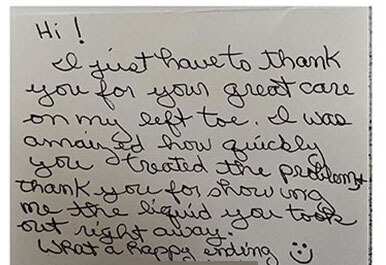 Hi!
I just have to thank
you for your great care
on my left toe. I was
amained how quickly
you treated the problem +
thank you for showing
me the liquid you took
out right away.
What a happy ending